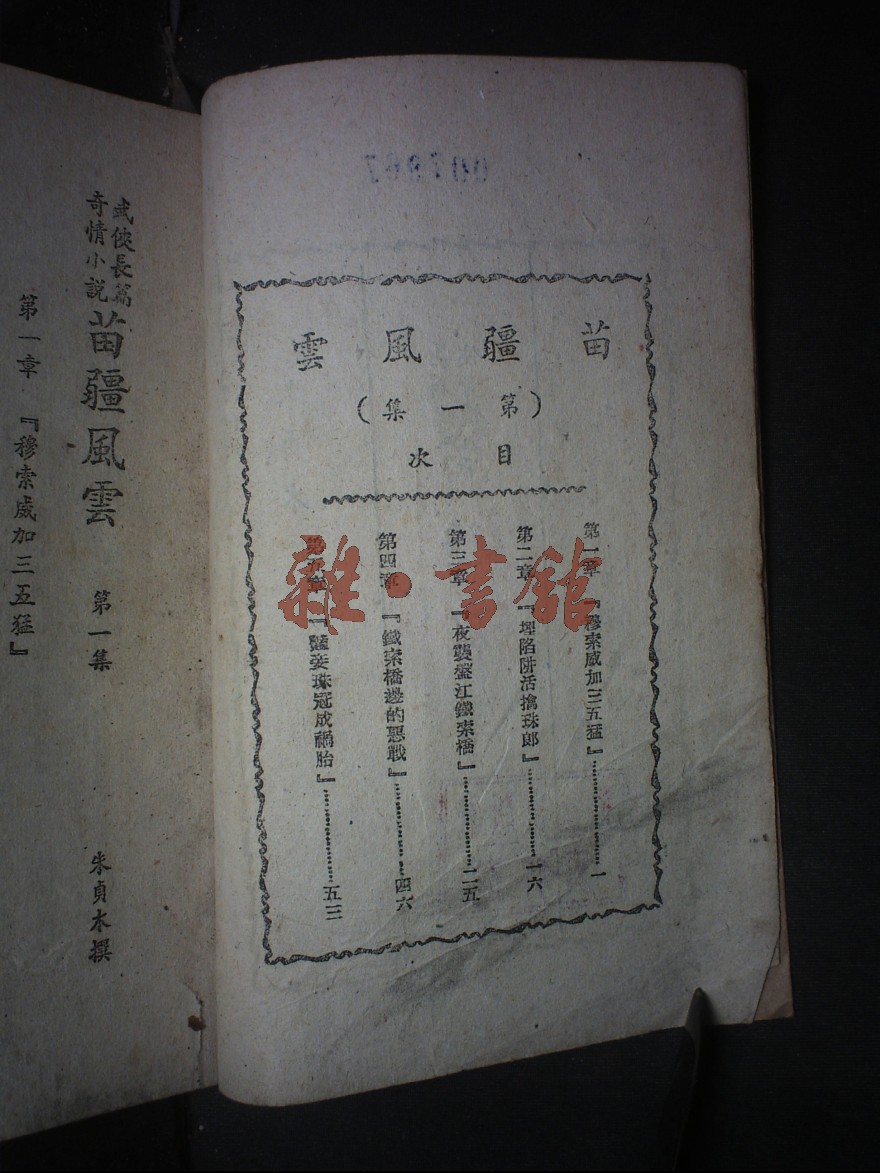 苗疆風雲
(第一集)
目次
第一章 『穆索威加三五猛』………………一
第二章 『埋陷阱活擒珠郎』………………一六
第三章 『夜襲盤江鐵索橋』………………二五
第四章 『鐵索橋邊的惡戰』………………四六
第五章 『艷妾珠冠成禍胎』………………五三
雜·書館
武俠長篇
奇情小說
苗疆風雲 第一集
朱貞木撰
第一章 『穆索威加三五猛』